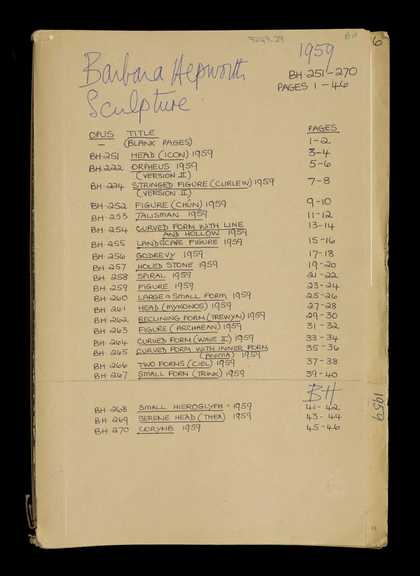 1959
BH
6
Barbara Hepworth
BH 251-270
Sculpture
PAGES 1-46
OPUS TITLE PAGES
— (BLANK PAGES) 1-2
BH 251 HEAD (ICON) 1959 3-4
BH 222 ORPHEUS 1959 5-6
(VERSION II)
BH 224 STRINGED FIGURE (CURLEW) 1959 7-8
(VERSION II)
BH 252 FIGURE (CHÛN) 1959 9-10
BH 253 TALISMAN 1959 11-12
BH 254 CURVED FORM WITH LINE 13-14
AND HOLLOW 1959
BH 255 LANDSCAPE FIGURE 1959 15-16
BH 256 GODREVY 1959 17-18
BH 257 HOLED STONE 1959 19-20
BH 258 SPIRAL 1959 21-22
BH 259 FIGURE 1959 23-24
BH 260 LARGE & SMALL FORM 1959 25-26
BH 261 HEAD (MYKONOS) 1959 27-28
BH 262 RECLINING FORM (TREWYN) 1959 29-30
BH 263 FIGURE (ARCHAEAN) 1959 31-32
BH 264 CURVED FORM (WAVE II) 1959 33-34
BH 265 CURVED FORM WITH INNER FORM 35-36
(ANIMA) 1959
BH 266 TWO FORMS (CIEL) 1959 37-38
BH 267 SMALL FORM (TRINK) 1959 39-40
BH
1959
BH 268 SMALL HIEROGLYPH - 1959 41-42
BH 269 SERENE HEAD (THEA) 1959 43-44
BH 270 CORYMB 1959 45-46